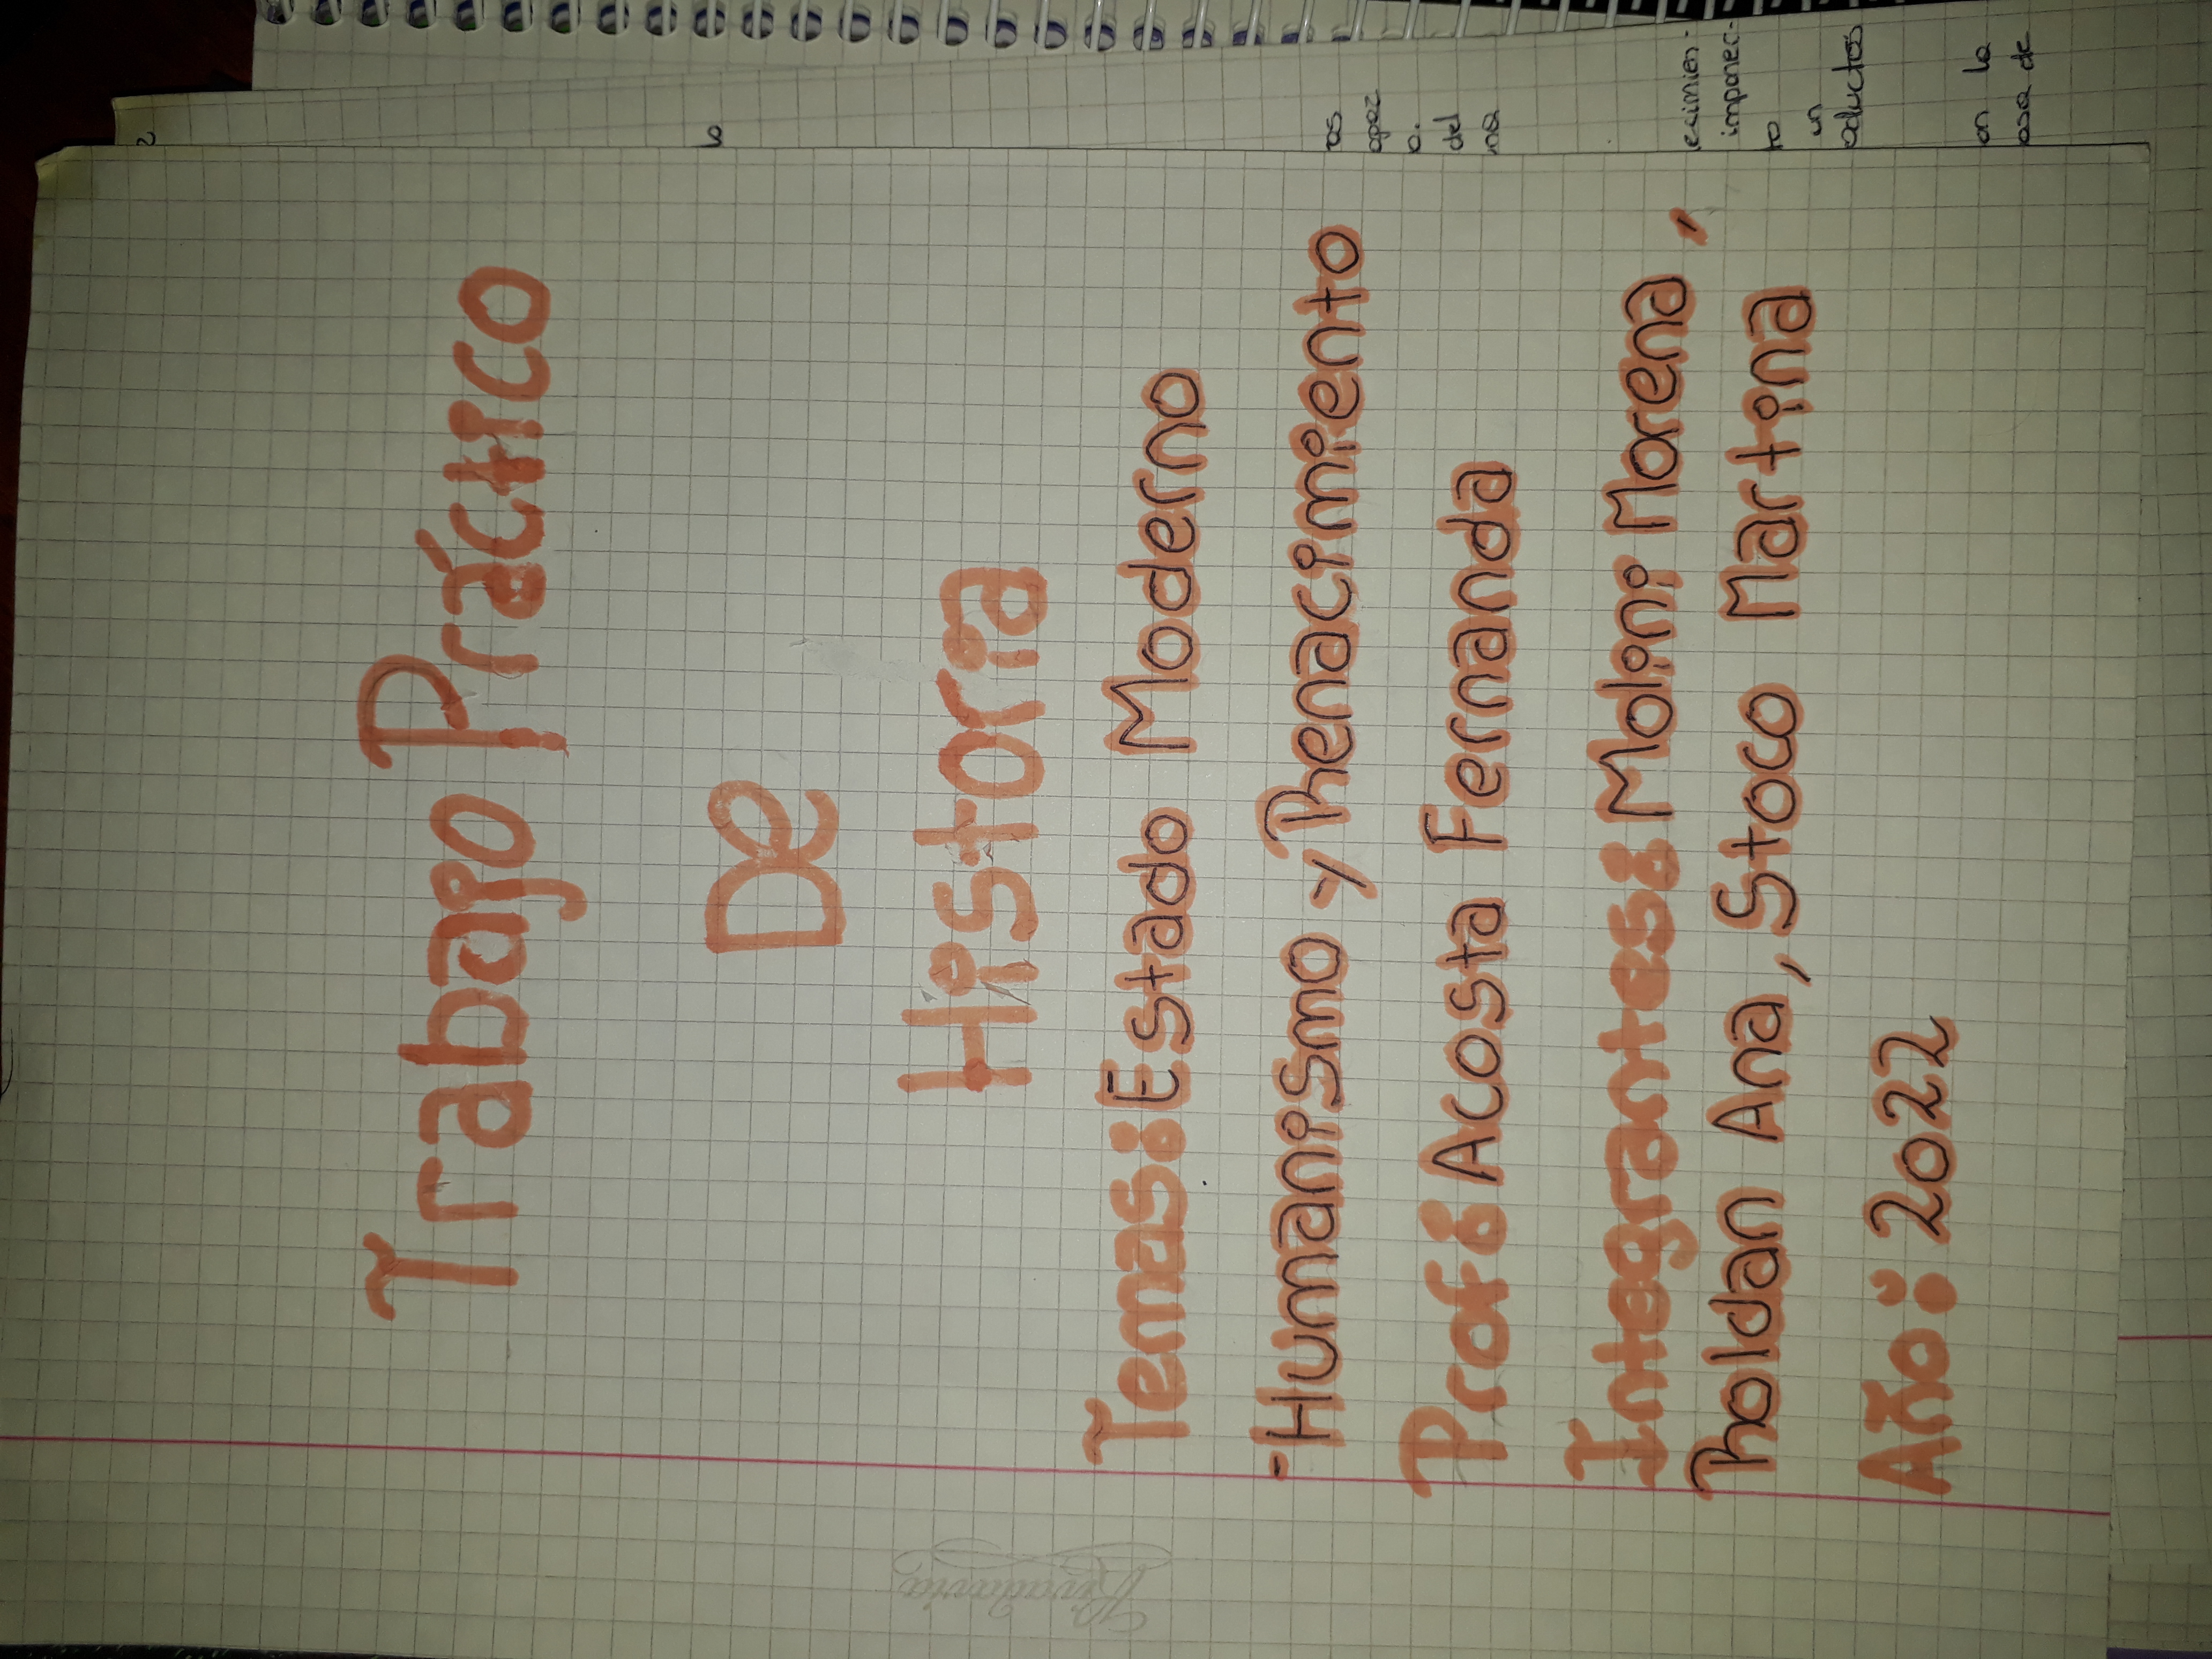 Trabajo Práctico
De
Historia
Temas: Estado Moderno
-Humanismo y Renacimiento
Prof: Acosta Fernanda
Integrantes: Molini Morena,
Roldan Ana, Stoco Martina
Año: 2022
Rivadavia